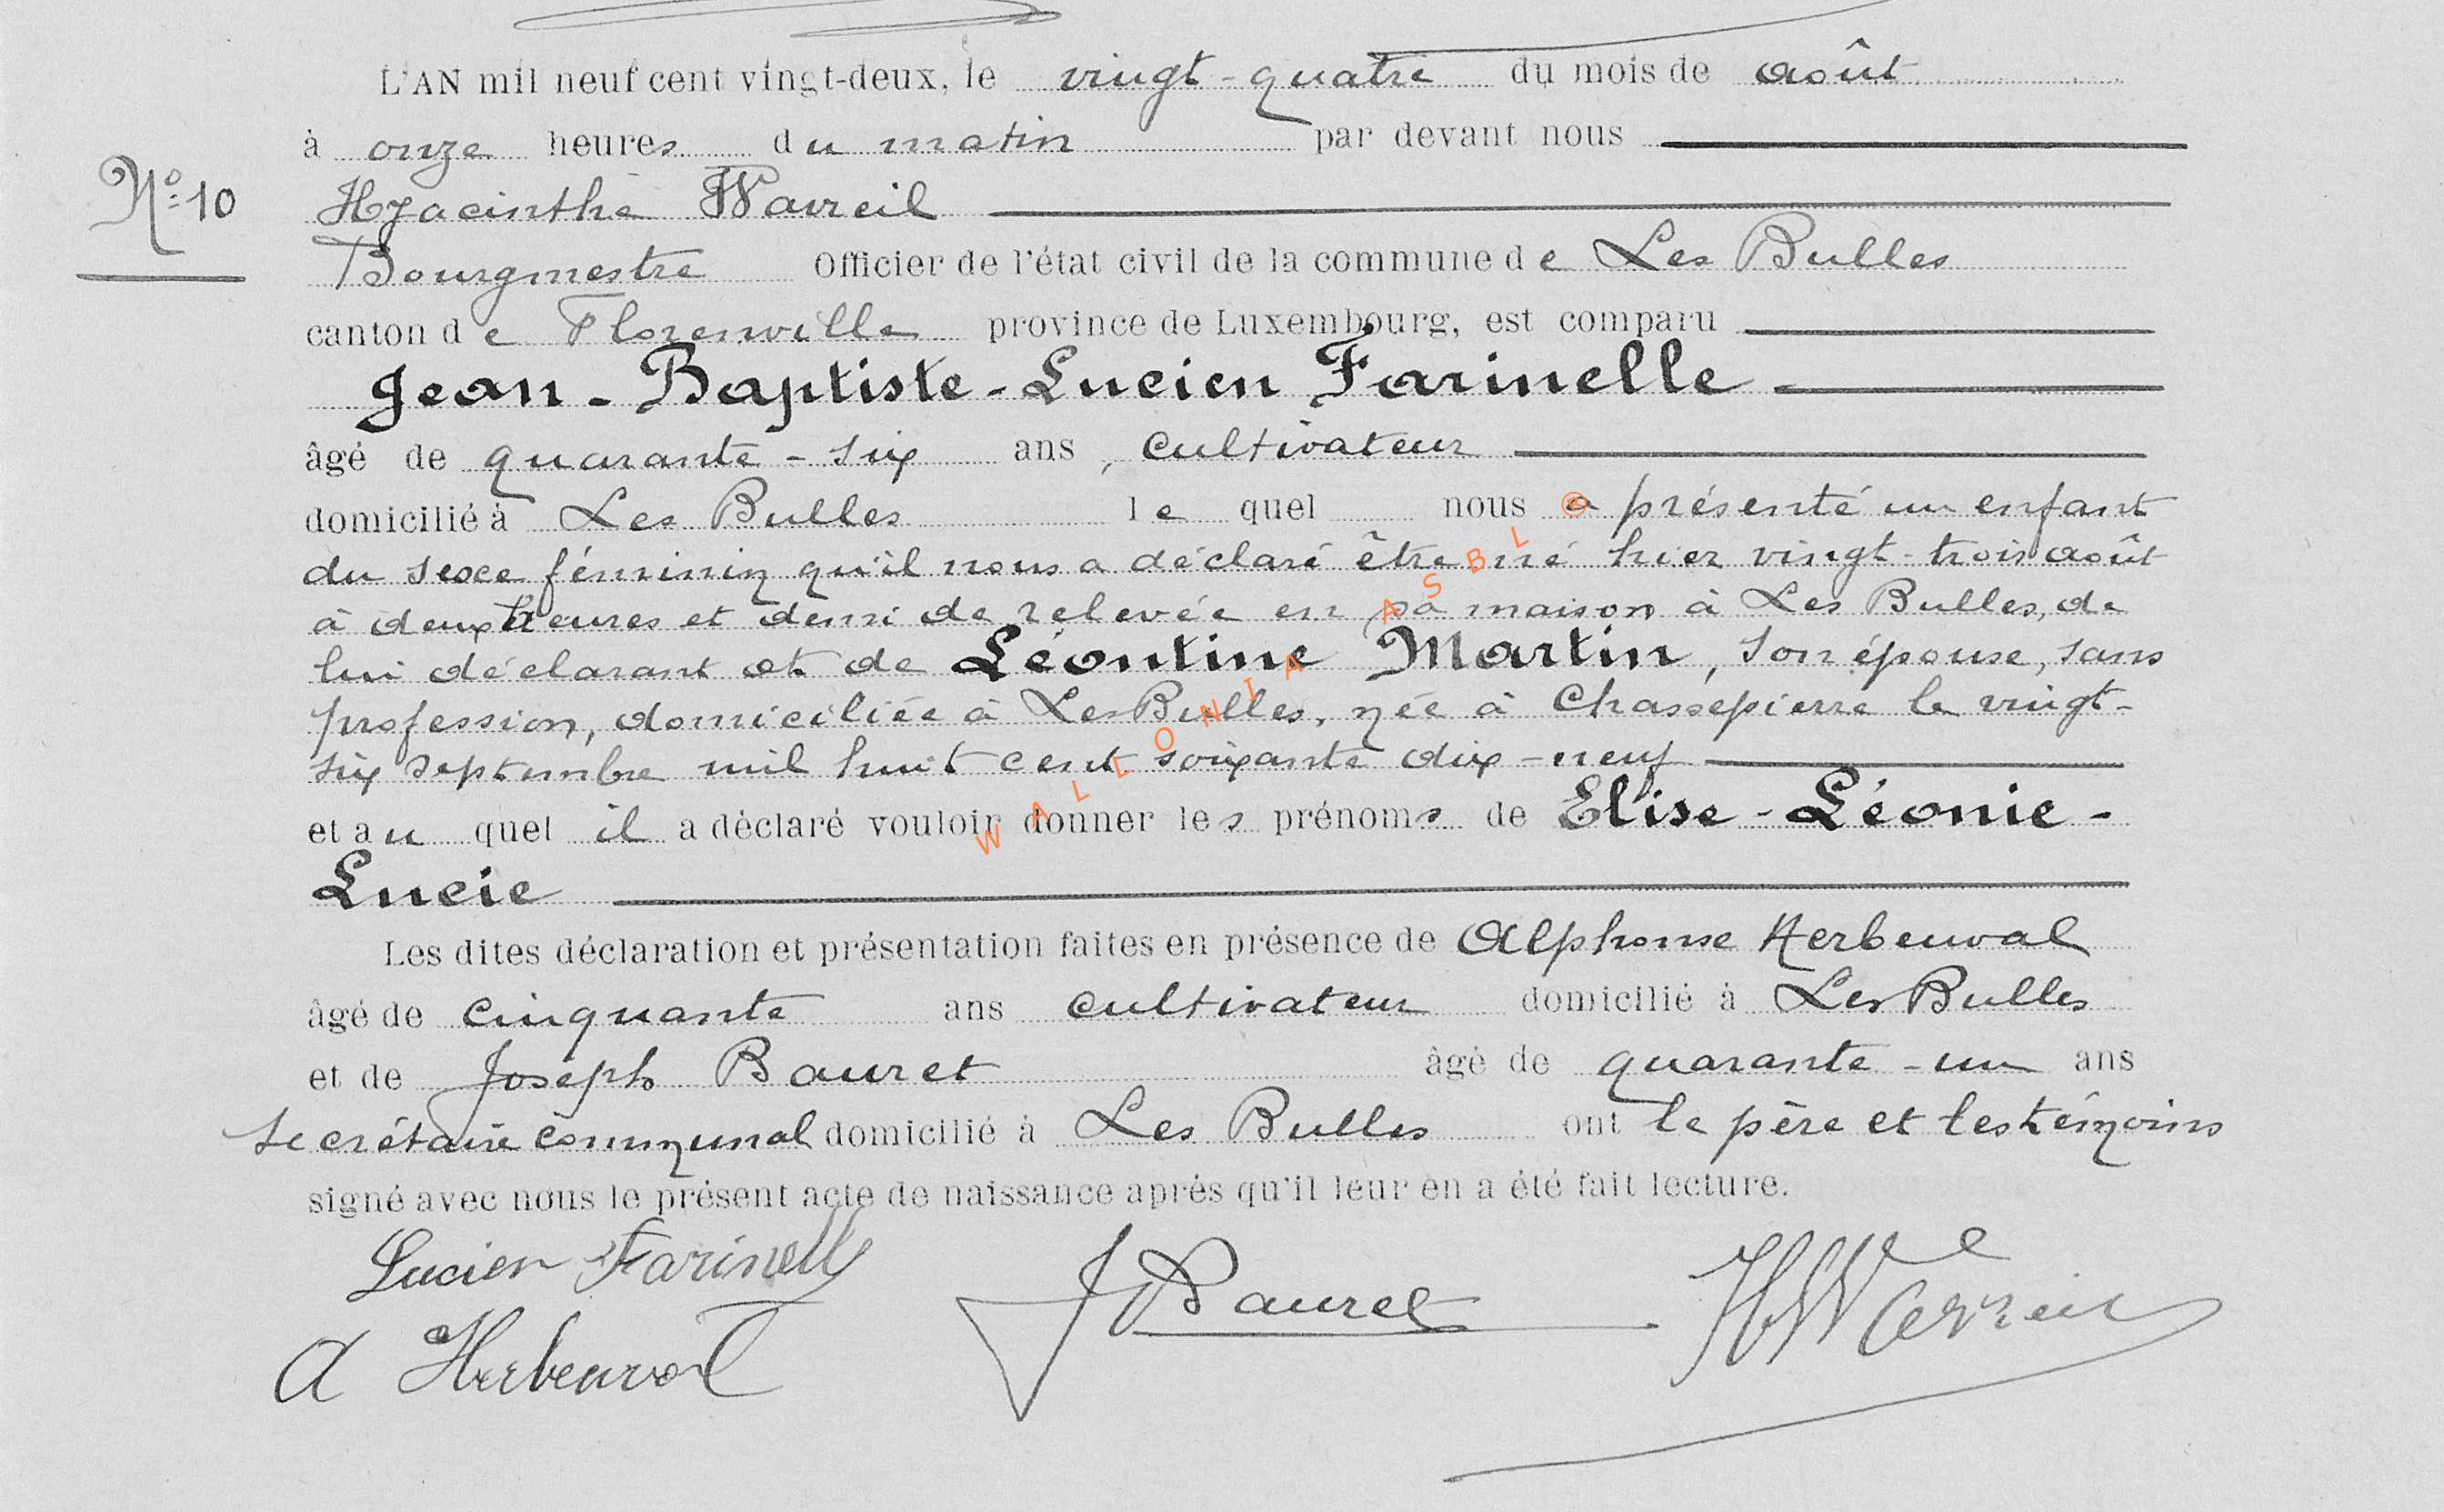 L'AN mil neuf cent vingt-deux, le vingt-quatre du mois de août
à onze heures du matin par devant nous
N° 10
Hyacinthe Wavreil
Bourgmestre Officier de l'état civil de la commune de Les Bulles
canton de Florenville province de Luxembourg, est comparu
Jean-Baptiste-Lucien Farinelle
âgé de quarante-six ans, cultivateur
domicilié à Les Bulles lequel nous a présenté un enfant
du sexe féminin qu'il nous a déclaré être né hier vingt-trois août
à deux heures et demi de relevée en sa maison à Les Bulles, de
lui déclarant et de Léontine Martin, son épouse, sans
profession, domiciliée à Les Bulles, née à Chassepierre le vingt-
six septembre mil huit cent soixante dix-neuf
et auquel il a déclaré vouloir donner les prénoms de Elise-Léonie-
Lucie
Les dites déclaration et présentation faites en présence de Alphonse Herbeuval
âgé de cinquante ans cultivateur domicilié à Les Bulles
et de Joseph Bauret âgé de quarante-un ans
secrétaire communal domicilié à Les Bulles ont le père et les témoins
signé avec nous le présent acte de naissance après qu'il leur en a été fait lecture.
Lucien Farinelle
J Bauret
H Wavreil
A Herbeuval
WALLONIA ASBL ©